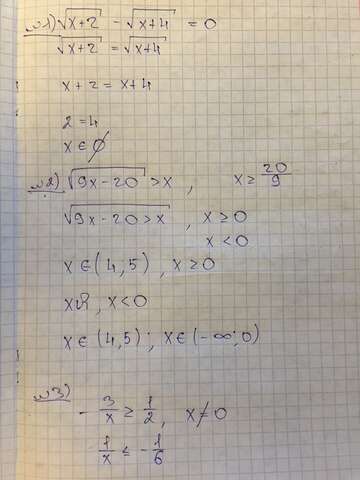 №1) √x+2 - √x+4 = 0
√x+2 = √x+4
x+2 = x+4
2=4
x ∈ ∅
№2) √9x-20 > x , x ≥ 20/9
√9x-20 > x , x ≥ 0
x < 0
x ∈ (4,5) , x ≥ 0
, x < 0
x ∈ (4,5) ; x ∈ (-∞; 0)
№3)
- 3/x ≥ 1/2 , x ≠ 0
1/x ≤ - 1/6